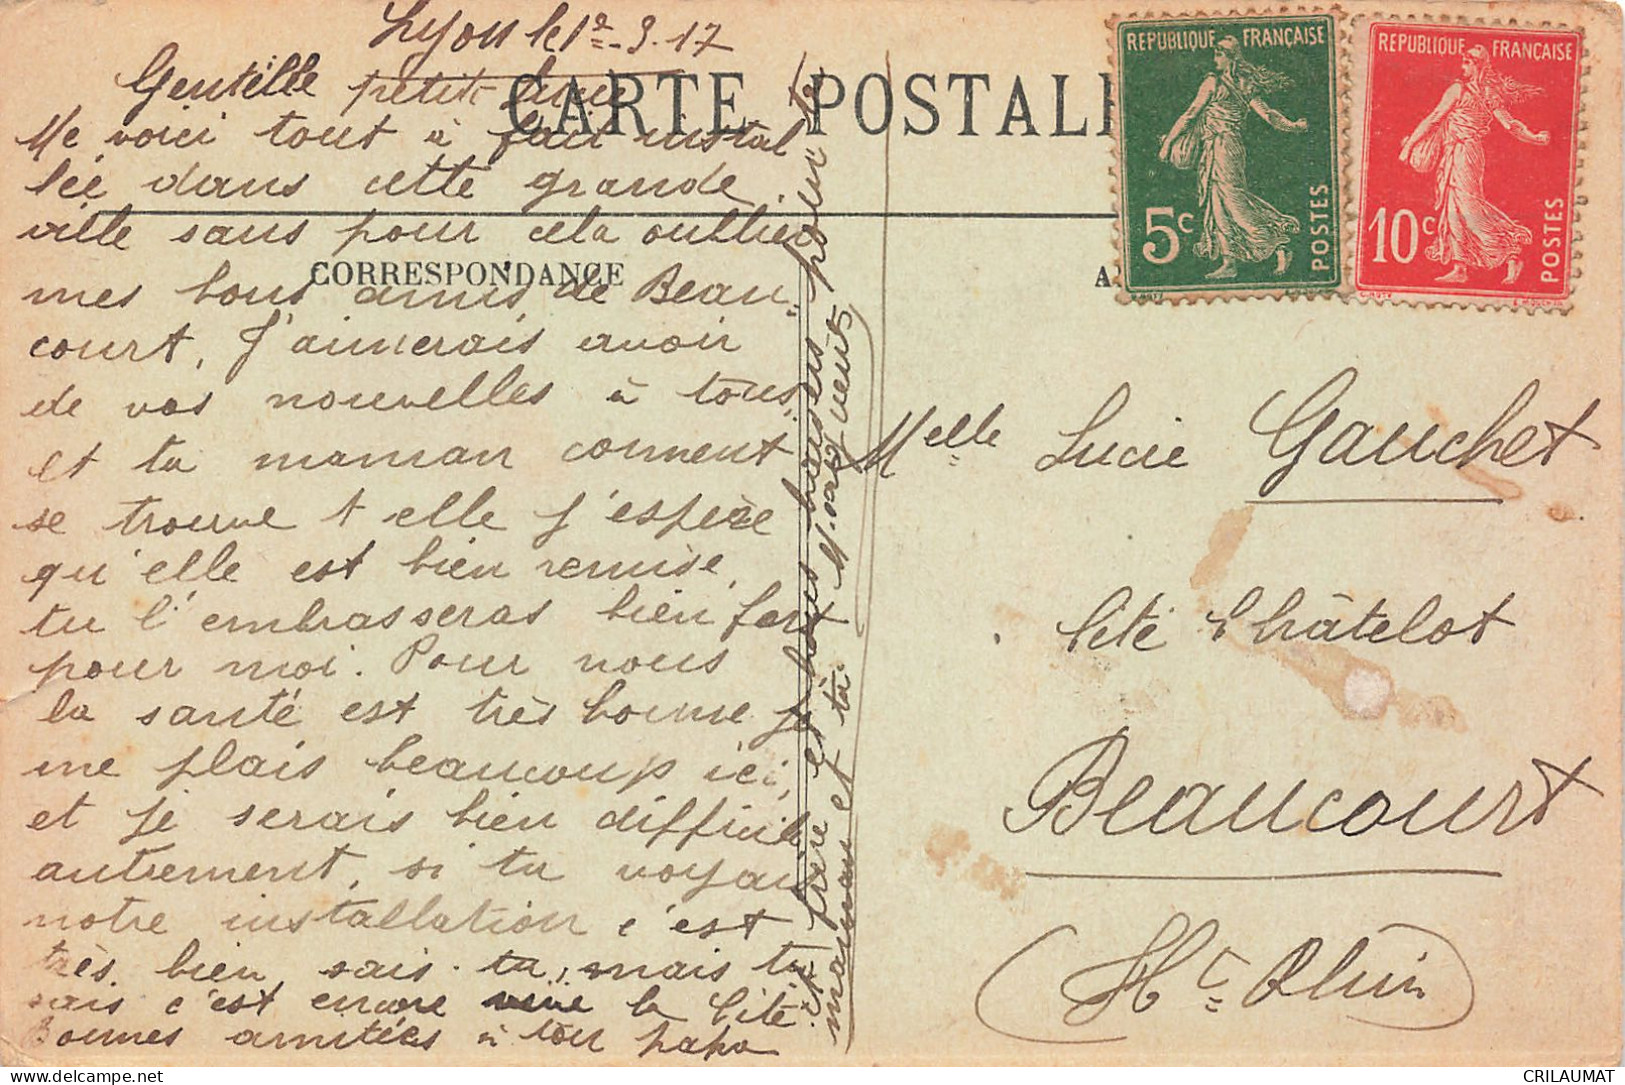 Lyon le 1er-3.17
Gentille petite Lucie
CARTE POSTALE
Me voici tout à fait instal
lée dans cette grande
ville sans pour cela oublier
CORRESPONDANCE
mes bons amis de Beau-
court, J'aimerais avoir
de vos nouvelles à tous,
et ta maman comment
se trouve t elle j'espère
qu'elle est bien remise,
tu l'embrasseras bien fort
pour moi. Pour nous
la santé est très bonne je
me plais beaucoup ici,
et je serais bien difficile
autrement, si tu voyais
notre installation c'est
très bien sais-tu, mais tu
sais c'est encore la Cité
Bonnes amitiés à ton papa
et frère et bons baisers pour ta
maman et ta
REPUBLIQUE FRANÇAISE
5c
POSTES
REPUBLIQUE FRANÇAISE
10c
POSTES
Melle Lucie Gauchet
Cité Châtelot
Beaucourt
(Ht Rhin)
CRILAUMAT